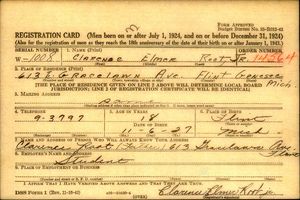 FORM APPROVED
Budget Bureau No. 33-R012-42
REGISTRATION CARD (Men born on or after July 1, 1924, and on or before December 31, 1924)
(Also for the registration of men as they reach the 18th anniversary of the date of their birth on or after January 1, 1943.)
SERIAL NUMBER
1. NAME (Print)
ORDER NUMBER
W-1008 Clarence Elmer Root, Jr. 14564
2. PLACE OF RESIDENCE (Print)
6132 Gracelawn Ave. Flint Genesee Mich
[THE PLACE OF RESIDENCE GIVEN ON LINE 2 ABOVE WILL DETERMINE LOCAL BOARD
JURISDICTION; LINE 2 OF REGISTRATION CERTIFICATE WILL BE IDENTICAL]
3. MAILING ADDRESS
Same
4. TELEPHONE
5. AGE IN YEARS
6. PLACE OF BIRTH
9-3797
18
Flint
DATE OF BIRTH
11-6-27
Mich
7. NAME AND ADDRESS OF PERSON WHO WILL ALWAYS KNOW YOUR ADDRESS
Clarence Root
Ave.
Flint
8. EMPLOYER'S NAME AND ADDRESS
Student
9. PLACE OF EMPLOYMENT OR BUSINESS
I AFFIRM THAT I HAVE VERIFIED ABOVE ANSWERS AND THAT THEY ARE TRUE.
DSS Form 1
(over)
Clarence Elmer Root Jr.